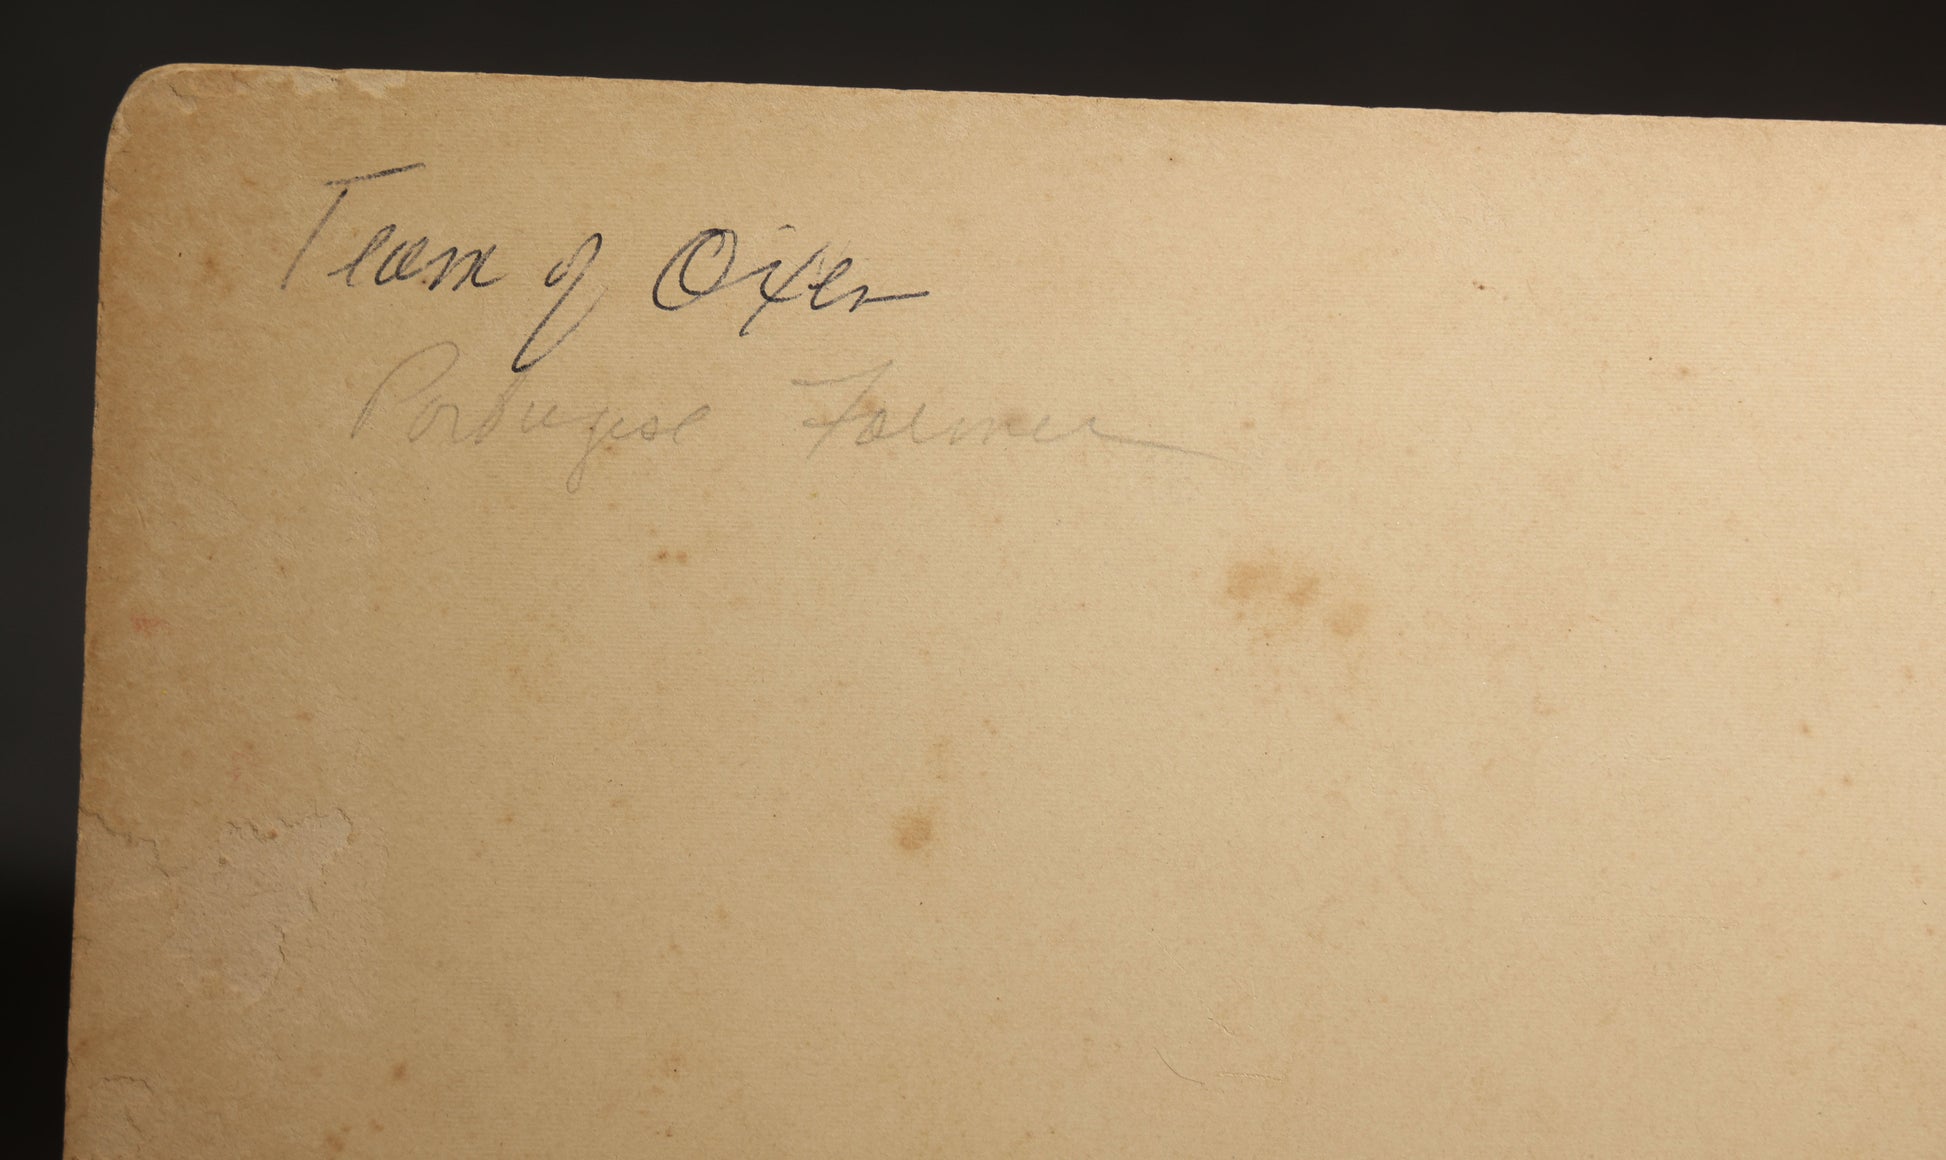 Team of Oixen
Portugese Farmer